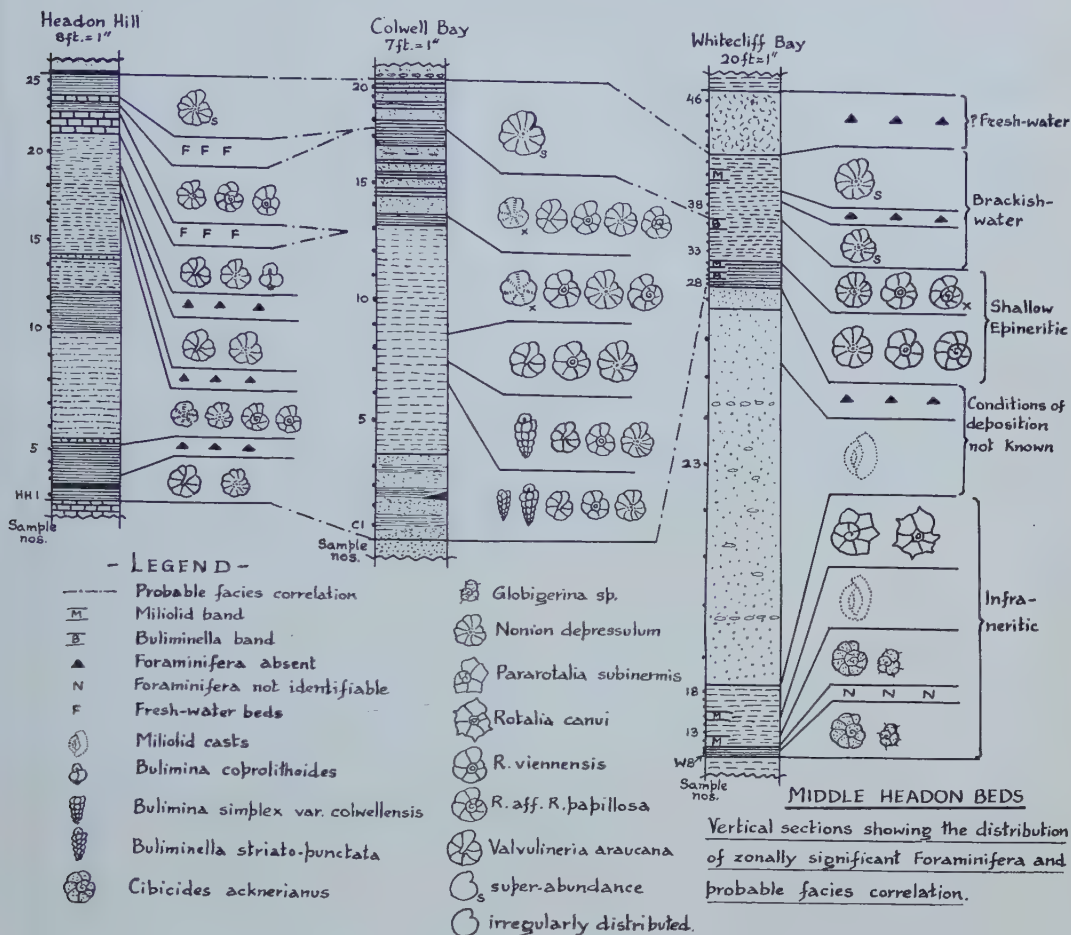 Headon Hill
8ft. = 1"
25
20
15
10
5
HH 1
Sample
nos.
S
F F F
F F F
Colwell Bay
7ft. = 1"
20
15
10
5
C1
Sample
nos.
S
x
x
Whitecliff Bay
20ft = 1"
46
M
38
B
33
M
B
28
23
18
M
13
M
W8
Sample
nos.
S
S
x
N N N
?Fresh-water
Brackish-
water
Shallow
Epineritic
Conditions of
deposition
not known
Infra-
neritic
- LEGEND -
Probable facies correlation
M Miliolid band
B Buliminella band
Foraminifera absent
N Foraminifera not identifiable
F Fresh-water beds
Miliolid casts
Bulimina coprolithoides
Bulimina simplex var. colwellensis
Buliminella striato-punctata
Cibicides acknerianus
Globigerina sp.
Nonion depressulum
Pararotalia subinermis
Rotalia canui
R. viennensis
R. aff. R. papillosa
Valvulineria araucana
S super-abundance
irregularly distributed.
MIDDLE HEADON BEDS
Vertical sections showing the distribution
of zonally significant Foraminifera and
probable facies correlation.